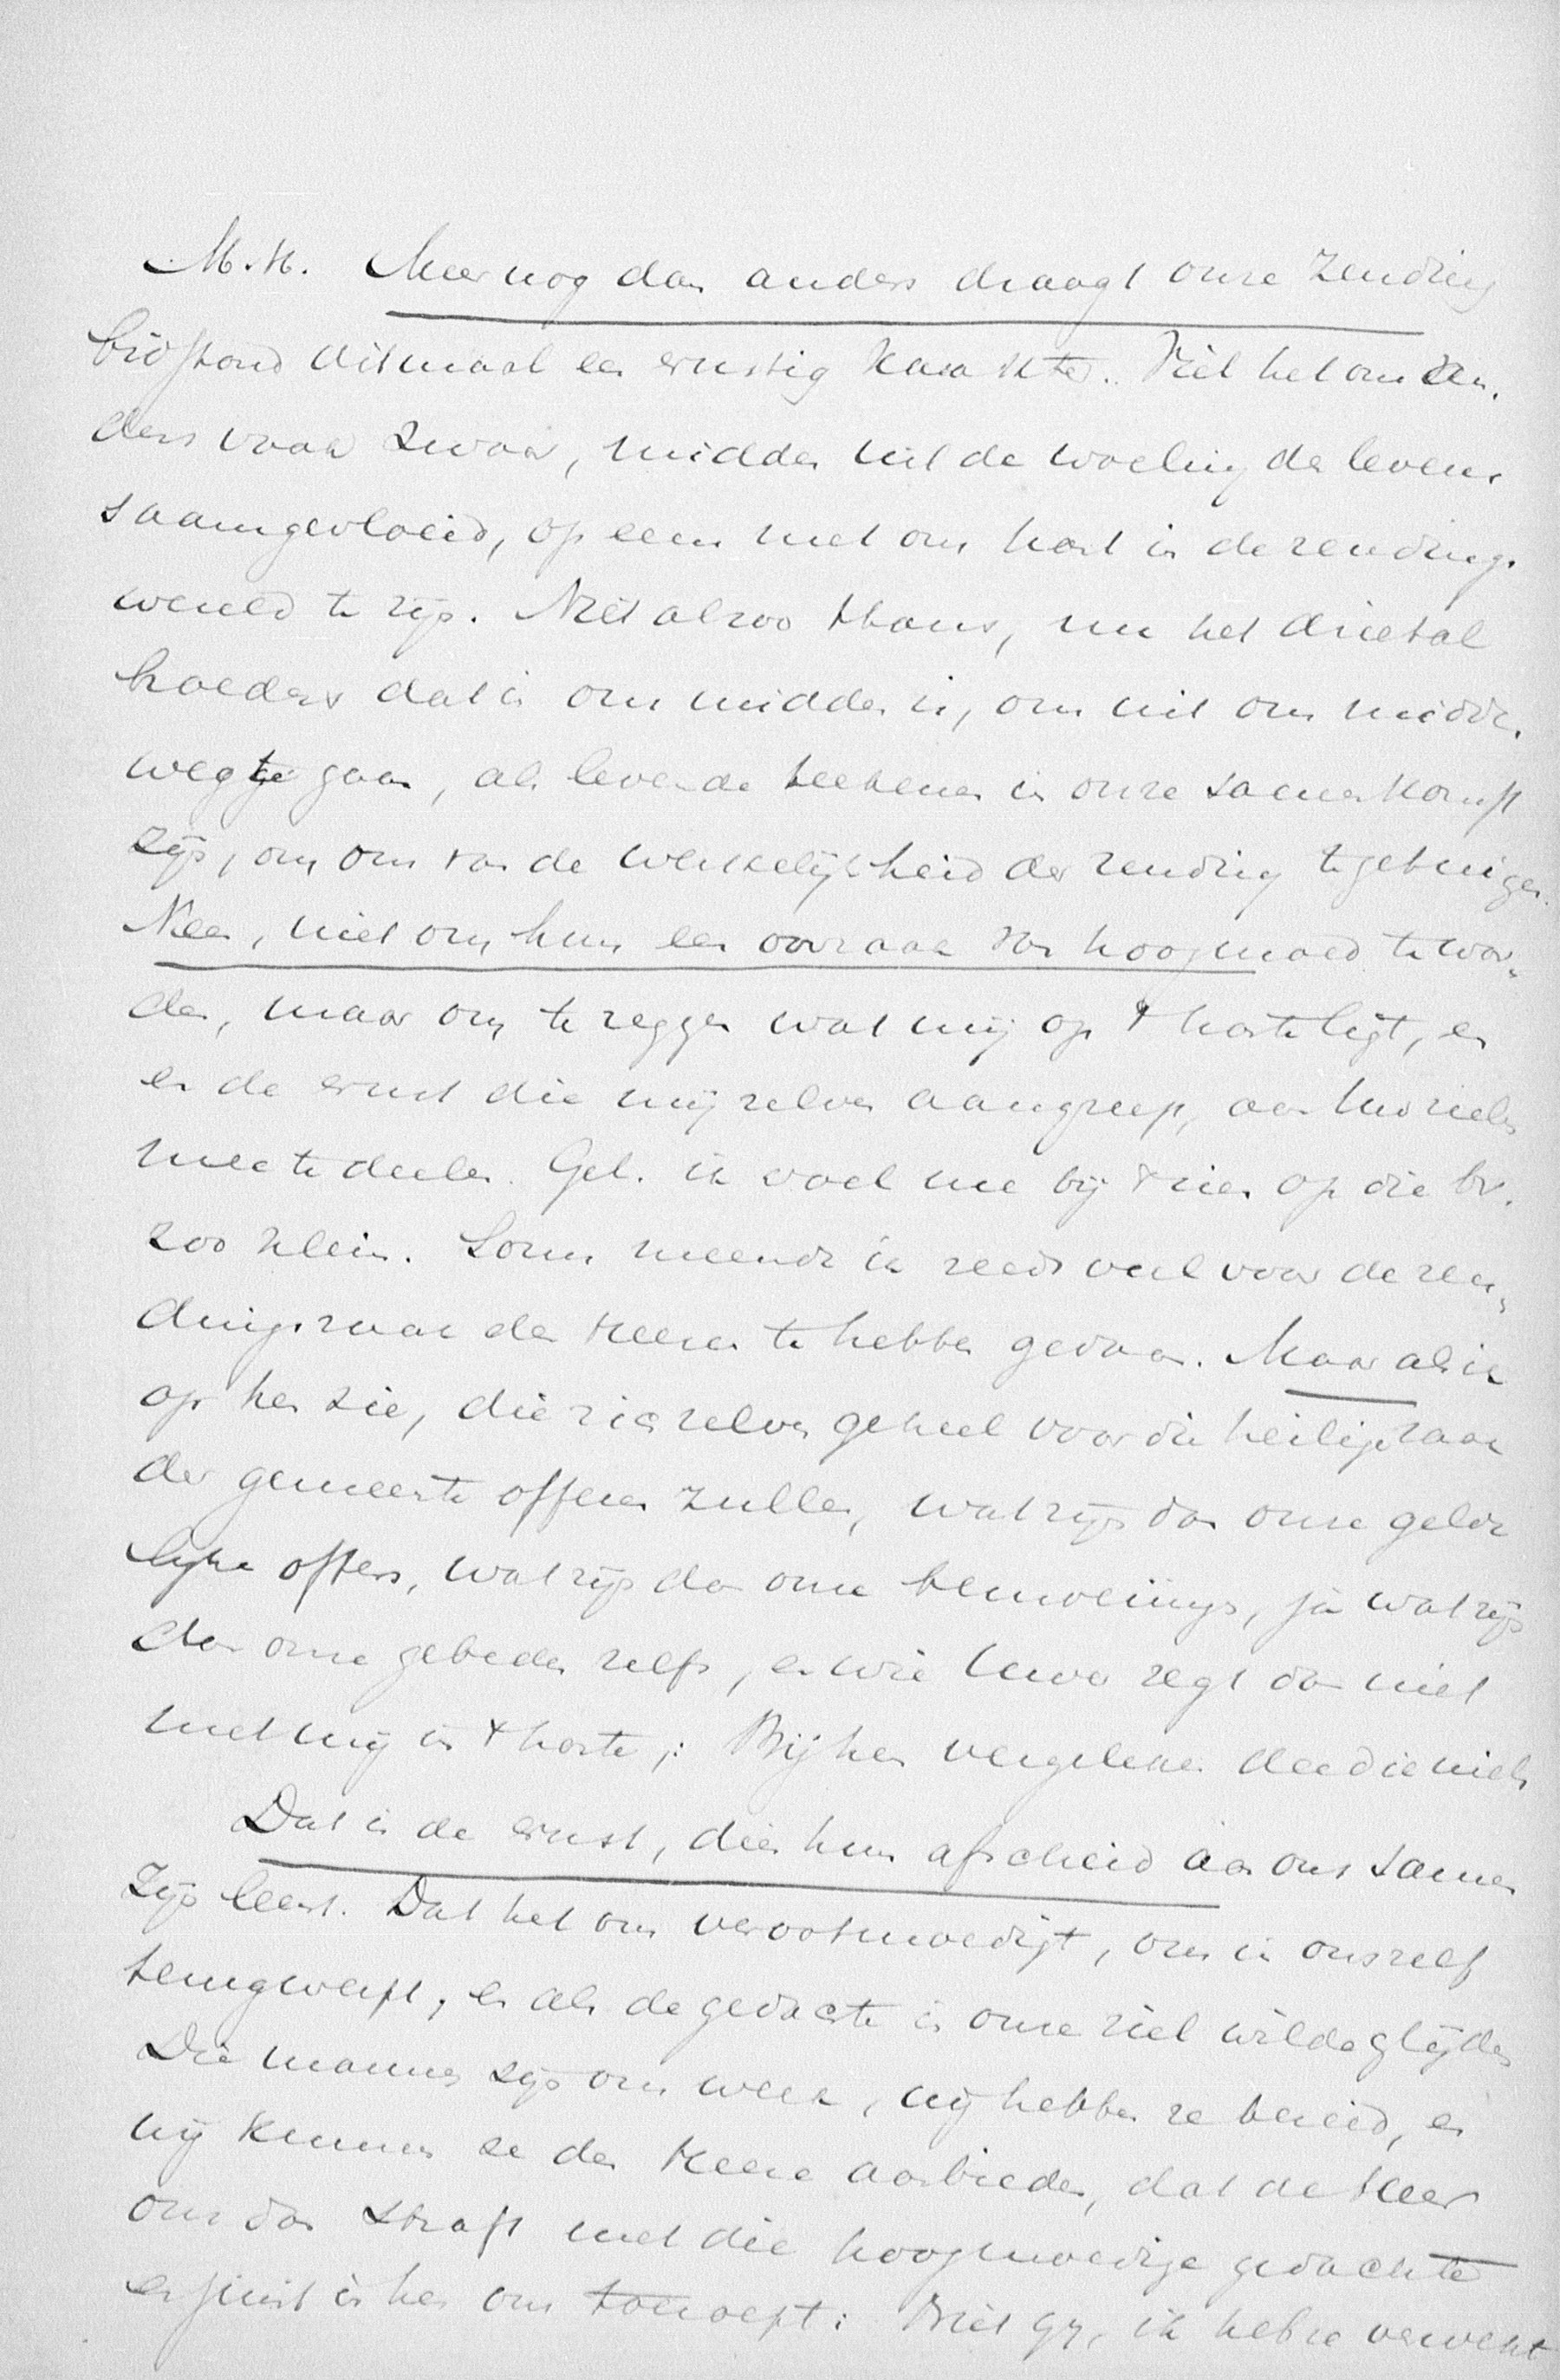 M.H. Meer nog dan anders draagt onze Zending
bidstond ditmaal een ernstig karakter. Viel het ons an-
ders vaak zwaar, midden uit de woeling des levens
saamgevloeid, op eens met ons hart in de zendings
wereld te zijn. Niet alzoo thans, nu het drietal
broeders dat in ons midden is, om uit ons midden
weg te gaan, als levende teekenen in onze samenkomst
zijn, om ons van de werkelijkheid der zending te getuigen.
Neen, niet om hun een oorzaak van hoogmoed te wor-
den, maar om te zeggen wat mij op 't harte ligt, en
en de ernst die mij zelven aangreep, aan uw zielen
mee te deelen. Gel. ik voel me bij 't zien op die br.
zoo klein. Soms meende ik reeds veel voor de zen-
dingszaak des Heeren te hebben gedaan. Maar als ik
op hen zie, die zich zelven geheel voor die heilige zaak
der gemeente offeren zullen, wat zijn dan onze gelde
lijke offers, wat zijn dan onze bemoeiings, ja wat zijn
dan onze gebeden zelfs, en wie uwer zegt dan niet
met mij in 't harte ;: Bij hen vergeleken deed ik niets
Dat is de ernst, dien hun afscheid aan ons samen
zijn leent. Dat het ons verootmoedigt, ons in onszelf
terugwerpt, en als de gedachte in onze ziel wilde glijden
Die mannen zijn ons werk, wij hebben ze bereid, en
wij kunnen ze den Heere aanbieden, dat de Heer
ons dan straft met die hoogmoedige gedachte
en juist in hen ons toeroept: Niet gij, ik heb ze verwekt